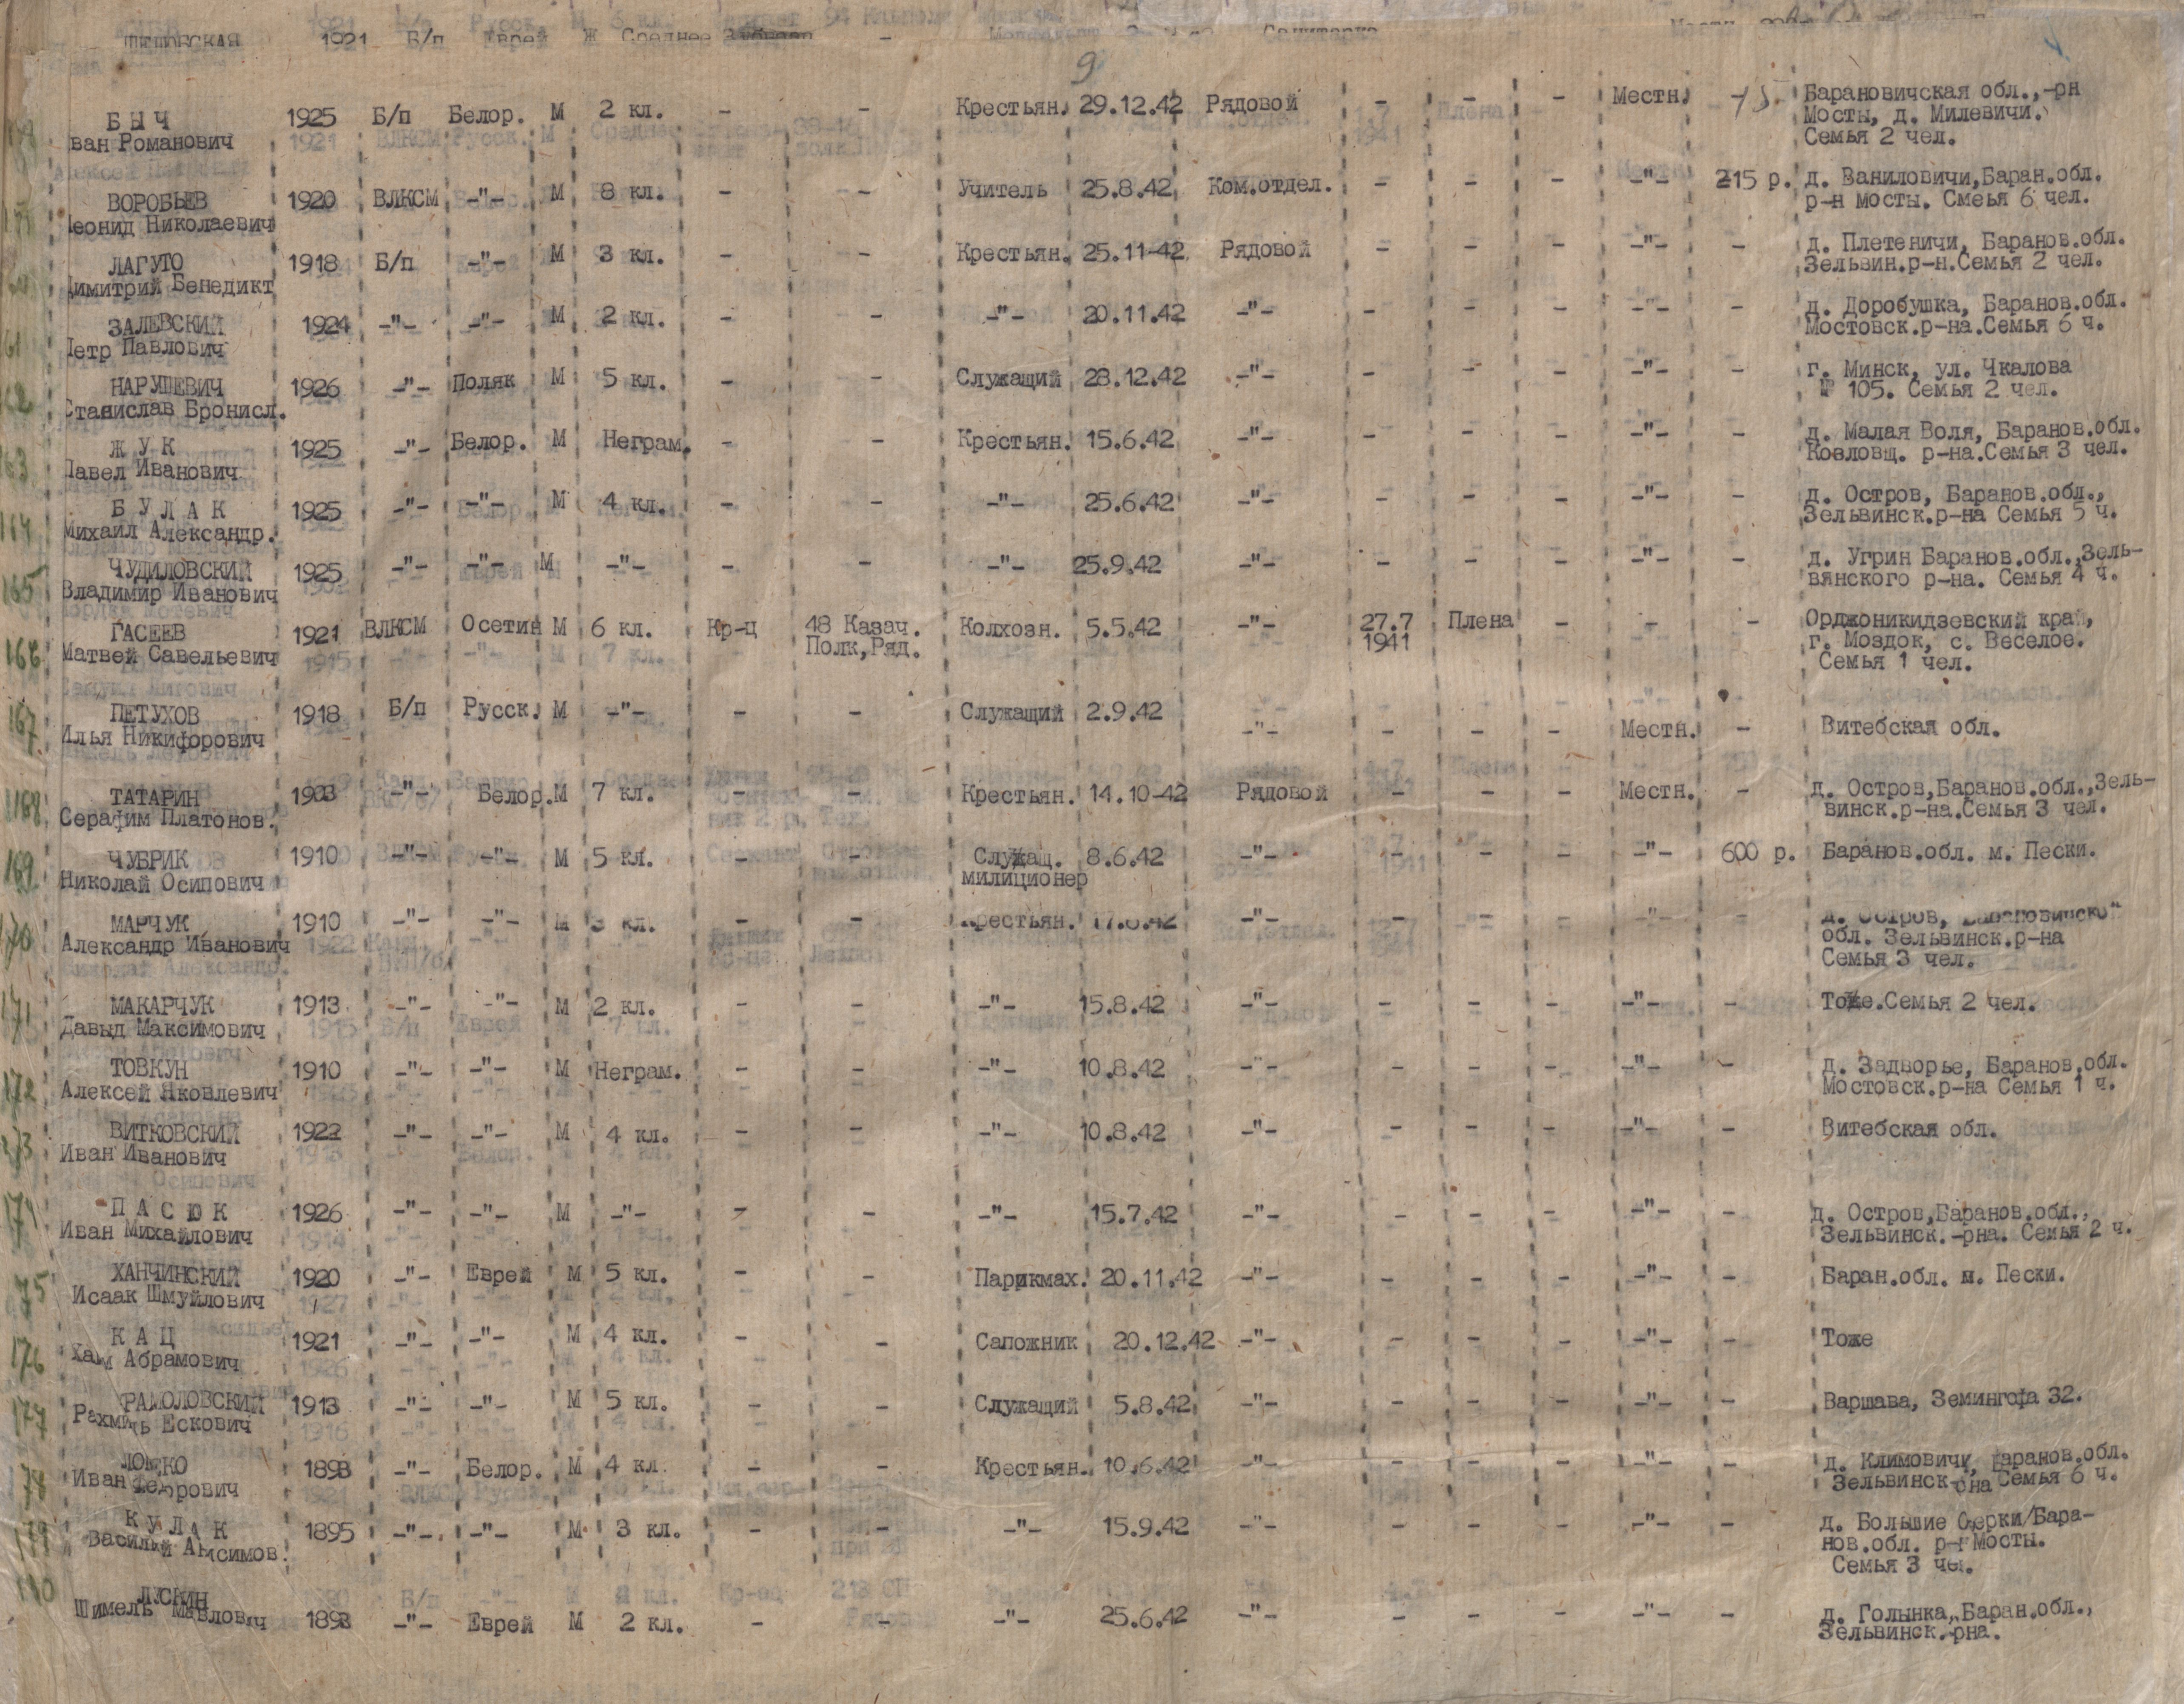 1921 Б/п Еврей Ж Среднее
9
БЫЧ 1925 Б/п Белор. М 2 кл. - - Крестьян. 29.12.42 Рядовой - - - Местн. Барановичская обл.,-рн
ван Романович Мосты, д. Милевичи.
Семья 2 чел.
ВОРОБЬЕВ 1920 ВЛКСМ -"- М 8 кл. - - Учитель 25.8.42 Ком.отдел. - - - -"- 215 р. д. Ваниловичи,Баран.обл.
еонид Николаевич р-н мосты. Смеья 6 чел.
ЛАГУТО 1918 Б/п -"- М 3 кл. - - Крестьян. 25.11-42 Рядовой - - - -"- - д. Плетеничи, Баранов.обл.
имитрий Бенедикт Зельвин.р-н.Семья 2 чел.
ЗАЛЕВСКИЙ 1924 -"- -"- М 2 кл. - - -"- 20.11.42 -"- - - - -"- - д. Доробушка, Баранов.обл.
етр Павлович Мостовск.р-на.Семья 6 ч.
162 НАРУШЕВИЧ 1926 -"- Поляк М 5 кл. - - Служащий 28.12.42 -"- - - - -"- - г. Минск, ул. Чкалова
Станислав Бронисл. № 105. Семья 2 чел.
163 ЖУК 1925 -"- Белор. М Неграм. - - Крестьян. 15.6.42 -"- - - - -"- - д. Малая Воля, Баранов.обл.
Павел Иванович Козловщ. р-на.Семья 3 чел.
164 БУЛАК 1925 -"- -"- М 4 кл. - - -"- 25.6.42 -"- - - - -"- - д. Остров, Баранов.обл.,
Михаил Александр. Зельвинск.р-на Семья 5 ч.
165 ЧУДИЛОВСКИЙ 1925 -"- -"- М -"- - - -"- 25.9.42 -"- - - - -"- - д. Угрин Баранов.обл.,Зель-
Владимир Иванович вянского р-на. Семья 4 ч.
166 ГАСЕЕВ 1921 ВЛКСМ Осетин М 6 кл. Кр-ц 48 Казач. Колхозн. 5.5.42 -"- 27.7 Плена - - - Орджоникидзевский край,
Матвей Савельевич Полк,Ряд. 1941 г. Моздок, с. Веселое.
Семья 1 чел.
167 ПЕТУХОВ 1918 Б/п Русск. М -"- - - Служащий 2.9.42
Илья Никифорович -"- - - - Местн. - Витебская обл.
168 ТАТАРИН 1903 -"- Белор.М 7 кл. - - Крестьян. 14.10-42 Рядовой - - - Местн. - д. Остров,Баранов.обл.,Зель-
Серафим Платонов. винск.р-на.Семья 3 чел.
169 ЧУБРИК 1910 -"- -"- М 5 кл. - - Служащ. 8.6.42 -"- - - - -"- 600 р. Баранов.обл. м. Пески.
Николай Осипович милиционер
170 МАРЧУК 1910 -"- -"- М 3 кл. - - Крестьян. -"- - - - -"- - д. Остров,
Александр Иванович обл. Зельвинск.р-на
Семья 3 чел.
171 МАКАРЧУК 1913 -"- -"- М 2 кл. - - -"- 15.8.42 -"- - - - -"- - Тоже.Семья 2 чел.
Давыд Максимович
172 ТОВКУН 1910 -"- -"- М Неграм. - - -"- 10.8.42 -"- - - - -"- - д. Задворье, Баранов.обл.
Алексей Яковлевич Мостовск.р-на Семья 1 ч.
173 ВИТКОВСКИЙ 1922 -"- -"- М 4 кл. - - -"- 10.8.42 -"- - - - -"- - Витебская обл.
Иван Иванович
174 ПАСЮК 1926 -"- -"- М -"- - - -"- 15.7.42 -"- - - - -"- - д. Остров,Баранов.обл.,
Иван Михайлович Зельвинск.-рна. Семья 2 ч.
175 ХАНЧИНСКИЙ 1920 -"- Еврей М 5 кл. - - Парикмах. 20.11.42 -"- - - - -"- - Баран.обл. м. Пески.
Исаак Шмуйлович
176 КАЦ 1921 -"- -"- М 4 кл. - - Сапожник 20.12.42 -"- - - - -"- - Тоже
Абрамович
177 1913 -"- -"- М 5 кл. - - Служащий 5.8.42 -"- - - - -"- - Варшава, Земингофа 32.
Ескович
178 1898 -"- Белор. М 4 кл - - Крестьян. 10.6.42 -"- - - - -"- - д. Климовичи, Баранов.обл.
Иван Федорович Зельвинск Семья 6 ч.
179 КУЛАК 1895 -"- -"- М 3 кл. - - -"- 15.9.42 -"- - - - -"- - д. Большие Озерки/Бара-
Василий Анисимов. нов.обл. р-н Мосты.
Семья 3 чел.
180 ЛУСКИН
Шимель 1898 -"- Еврей М 2 кл. - - -"- 25.6.42 -"- - - - -"- - д. Голынка,Баран.обл.,
Зельвинск.рна.